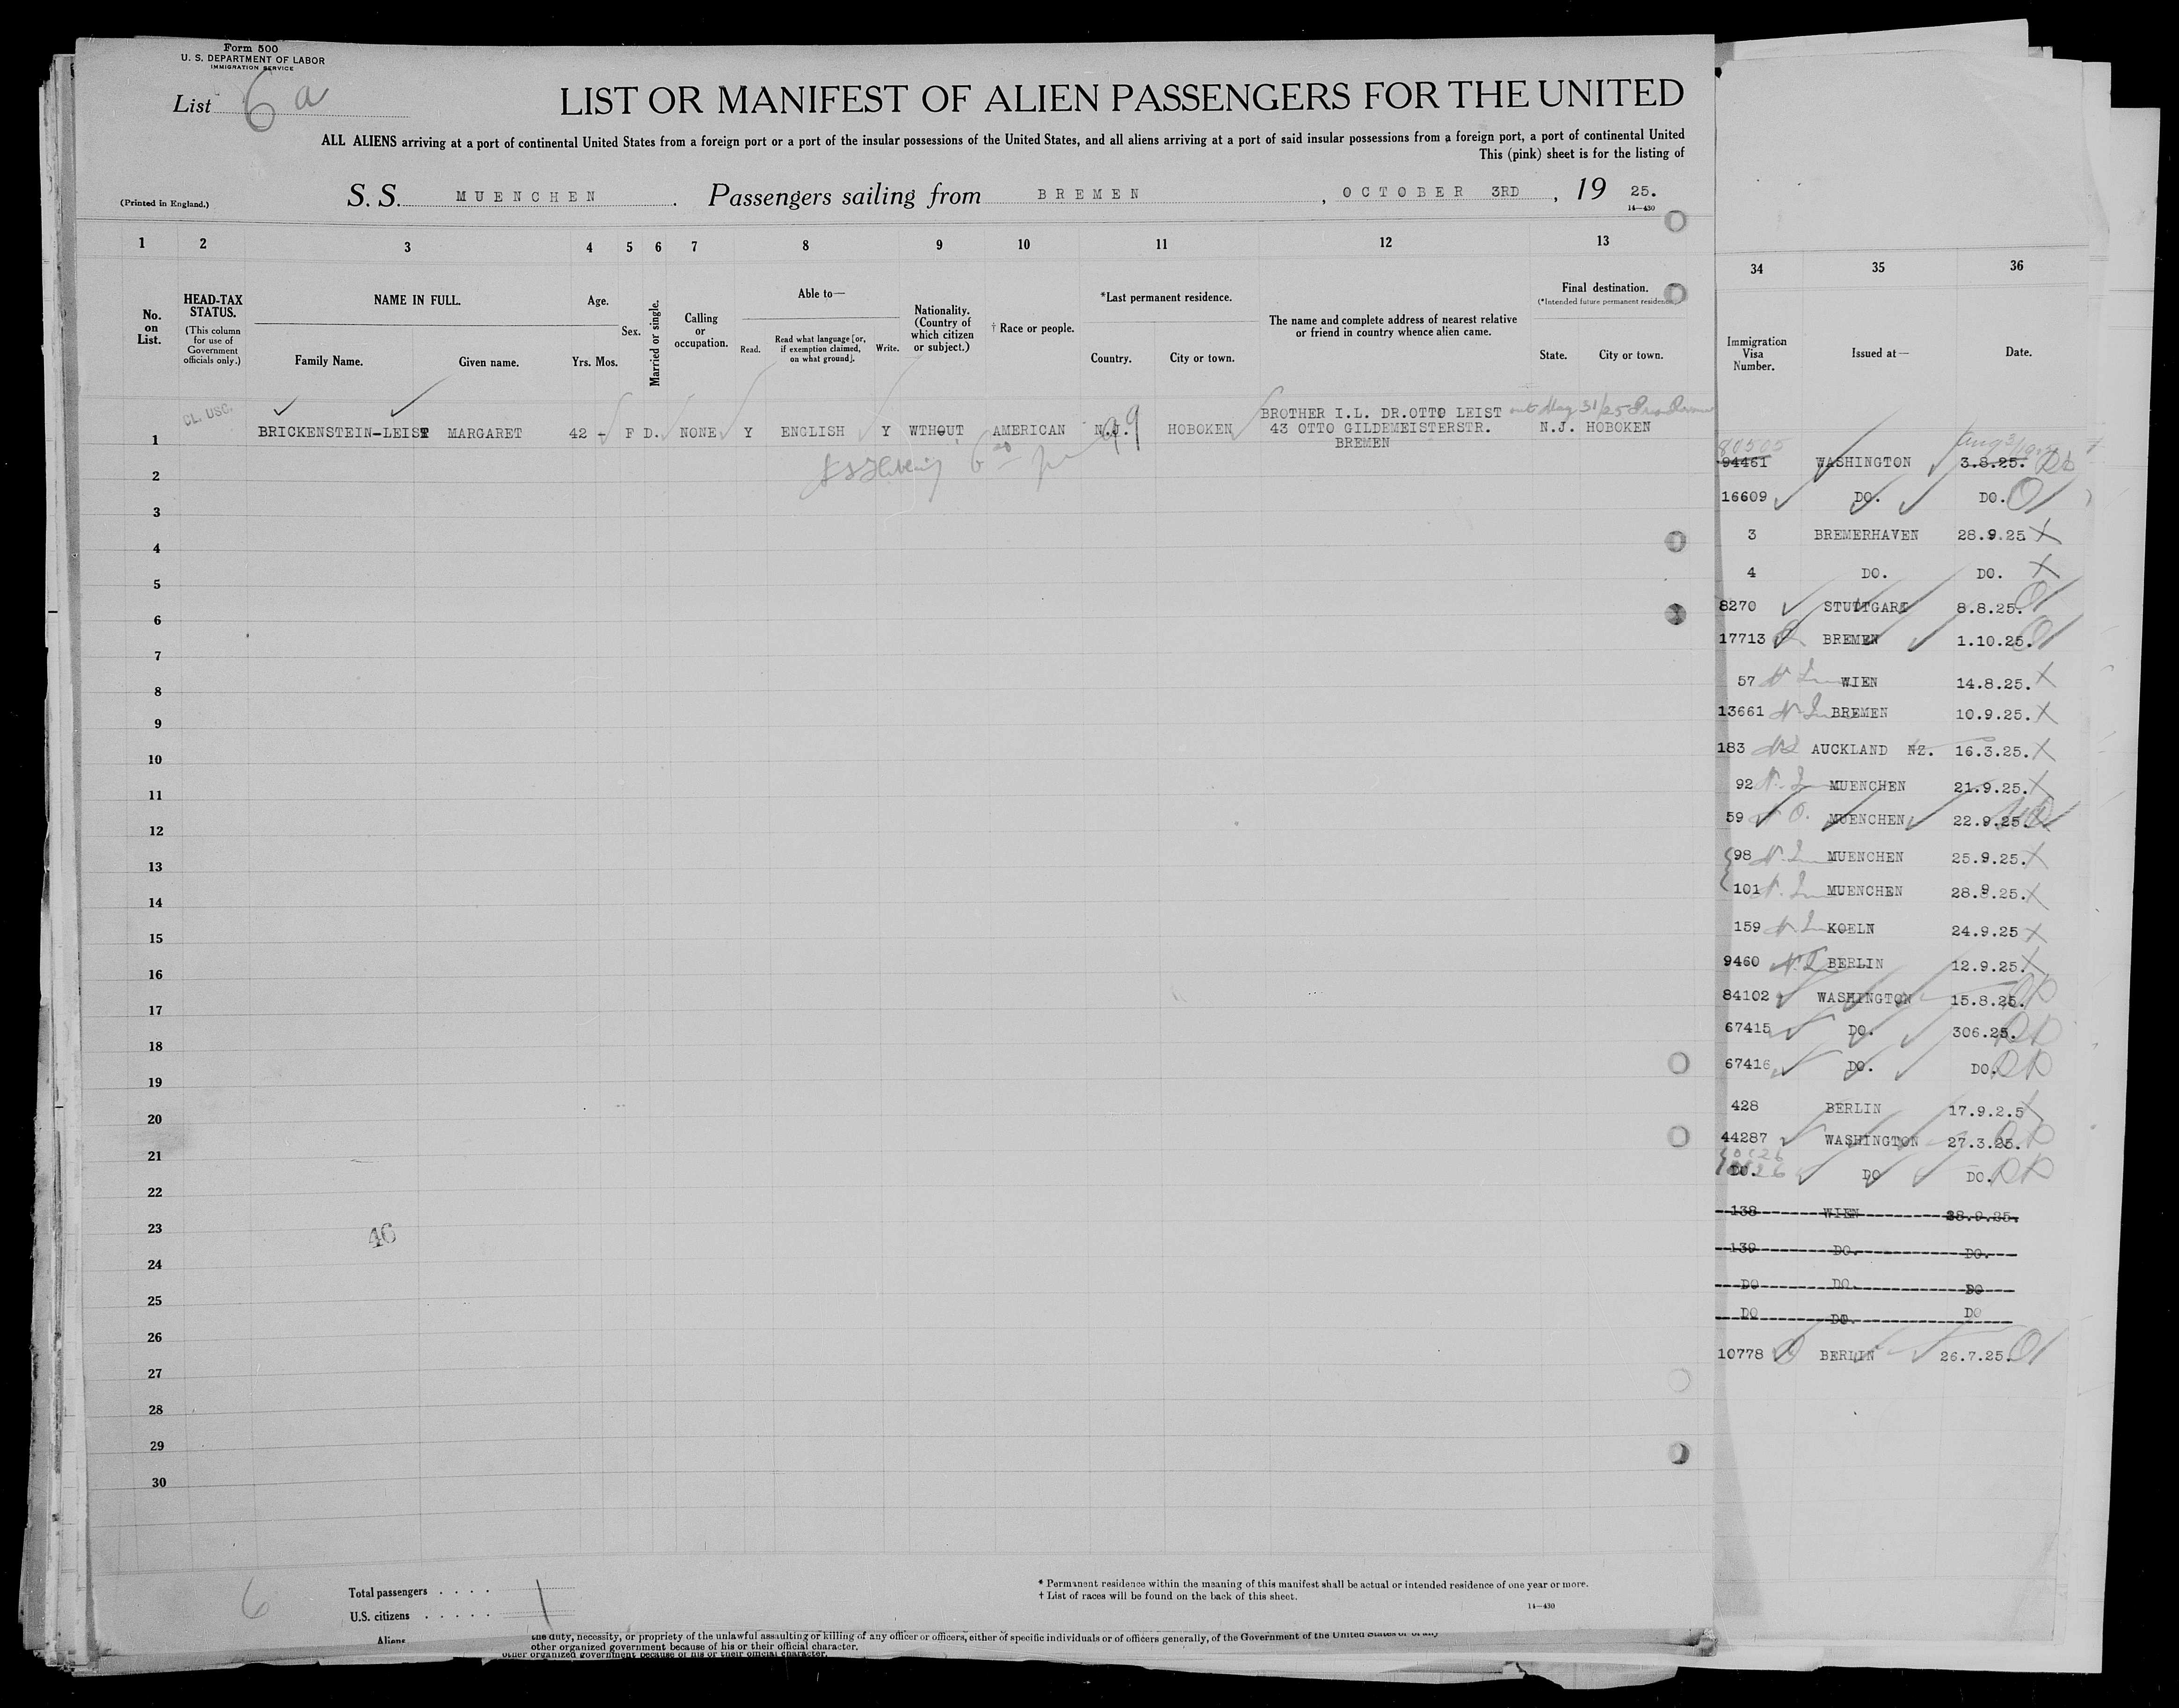 Form 500
U. S. DEPARTMENT OF LABOR
IMMIGRATION SERVICE
List 6 a
LIST OR MANIFEST OF ALIEN PASSENGERS FOR THE UNITED
ALL ALIENS arriving at a port of continental United States from a foreign port or a port of the insular possessions of the United States, and all aliens arriving at a port of said insular possessions from a foreign port, a port of continental United
This (pink) sheet is for the listing of
(Printed in England.)
S. S. MUENCHEN . Passengers sailing from BREMEN , OCTOBER 3RD , 19 25.
14—430
1 2 3 4 5 6 7 8 9 10 11 12 13
No. on List.
HEAD-TAX STATUS.
(This column for use of Government officials only.)
NAME IN FULL.
Family Name. Given name.
Age.
Yrs. Mos.
Sex.
Married or single.
Calling or occupation.
Able to—
Read.
Read what language [or, if exemption claimed, on what ground].
Write.
Nationality. (Country of which citizen or subject.)
† Race or people.
*Last permanent residence.
Country. City or town.
The name and complete address of nearest relative or friend in country whence alien came.
Final destination.
(*Intended future permanent residence.)
State. City or town.
CL. USC.
BROTHER I.L. DR.OTTO LEIST
1 BRICKENSTEIN-LEIST MARGARET 42 - F D. NONE Y ENGLISH Y WTHOUT AMERICAN N.J. HOBOKEN 43 OTTO GILDEMEISTERSTR. N.J. HOBOKEN
BREMEN
out May 31/25
2
3
4
5
6
7
8
9
10
11
12
13
14
15
16
17
18
19
20
21
22
23
24
25
26
27
28
29
30
46
6
Total passengers . . . .
U.S. citizens . . . . . 1
Aliens
* Permanent residence within the meaning of this manifest shall be actual or intended residence of one year or more.
† List of races will be found on the back of this sheet.
14—430
the duty, necessity, or propriety of the unlawful assaulting or killing of any officer or officers, either of specific individuals or of officers generally, of the Government of the United States or of any
other organized government because of his or their official character.
other organized government because of his or their official character.
34 35 36
Immigration Visa Number.
Issued at—
Date.
80505
94461 WASHINGTON 3.8.25.
16609 DO. DO.
3 BREMERHAVEN 28.9.25
4 DO. DO.
8270 STUTTGART 8.8.25.
17713 BREMEN 1.10.25.
57 WIEN 14.8.25.
13661 BREMEN 10.9.25.
183 AUCKLAND NZ. 16.3.25.
92 MUENCHEN 21.9.25.
59 MUENCHEN 22.9.25.
98 MUENCHEN 25.9.25.
101 MUENCHEN 28.9.25.
159 KOELN 24.9.25
9460 BERLIN 12.9.25.
84102 WASHINGTON 15.8.25.
67415 DO. 306.25.
67416 DO. DO.
428 BERLIN 17.9.2.5
44287 WASHINGTON 27.3.25.
DO. DO DO.
138 WIEN 28.9.25.
139 DO. DO.
DO DO. DO
DO DO. DO
10778 BERLIN 26.7.25.